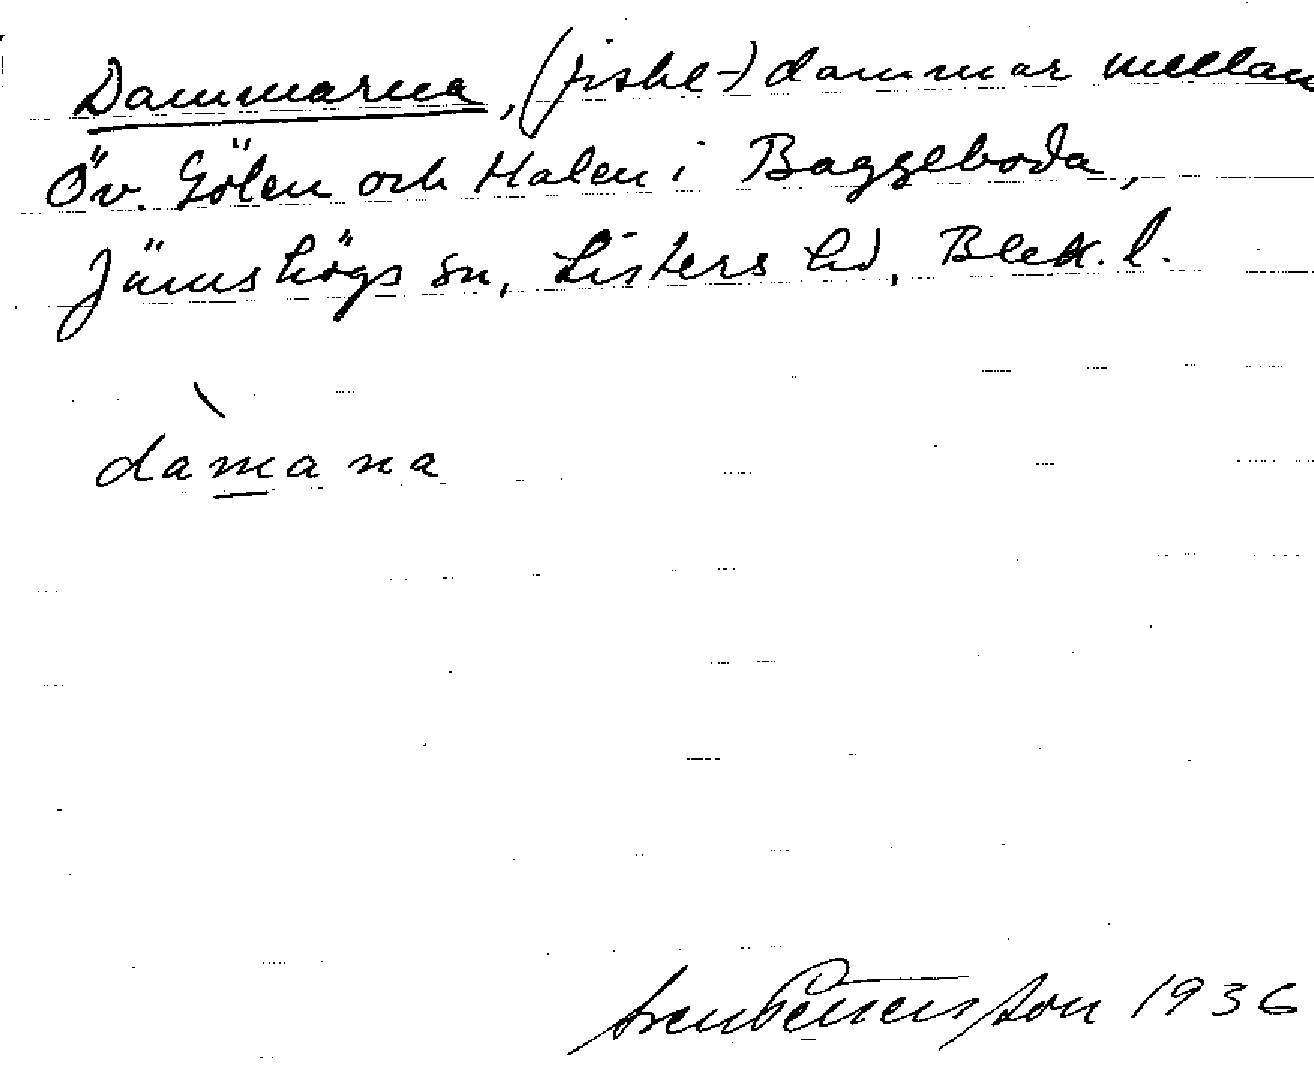 Dammarna, (fiske-) dammar mellan
Öv. Gölen och Halen i Baggeboda,
Jämshögs sn, Listers hd, Blek. l.
dàmana
Sven Pettersson 1936